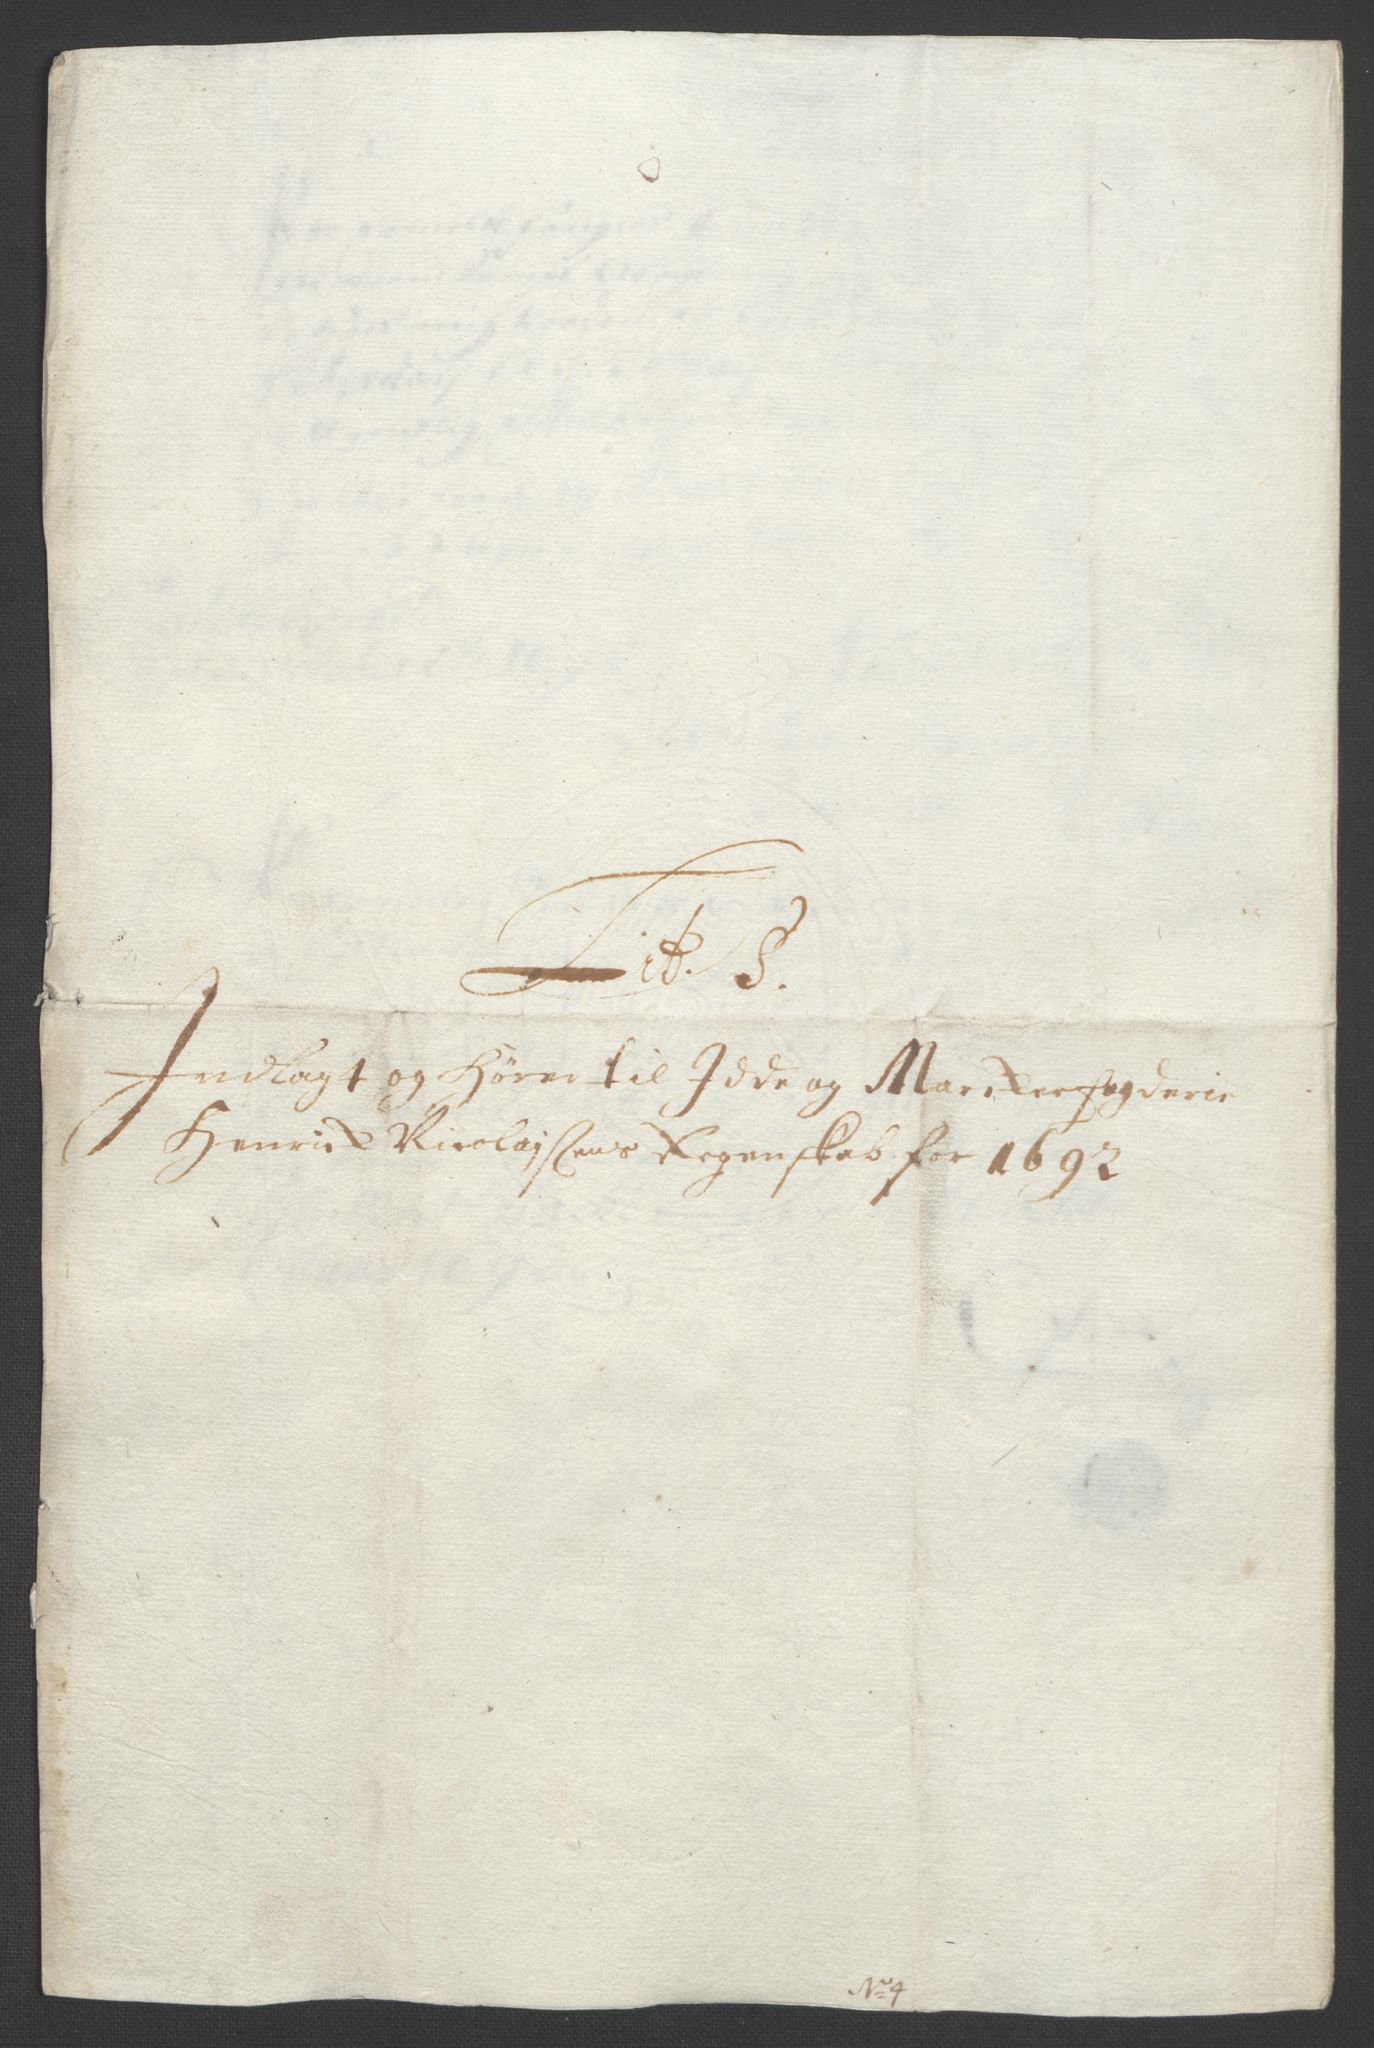 Lit. S.
Indlagt og hører til Idde og Marcker fogderie
Henrick Nicolajsens Regenskab for 1692
No 4